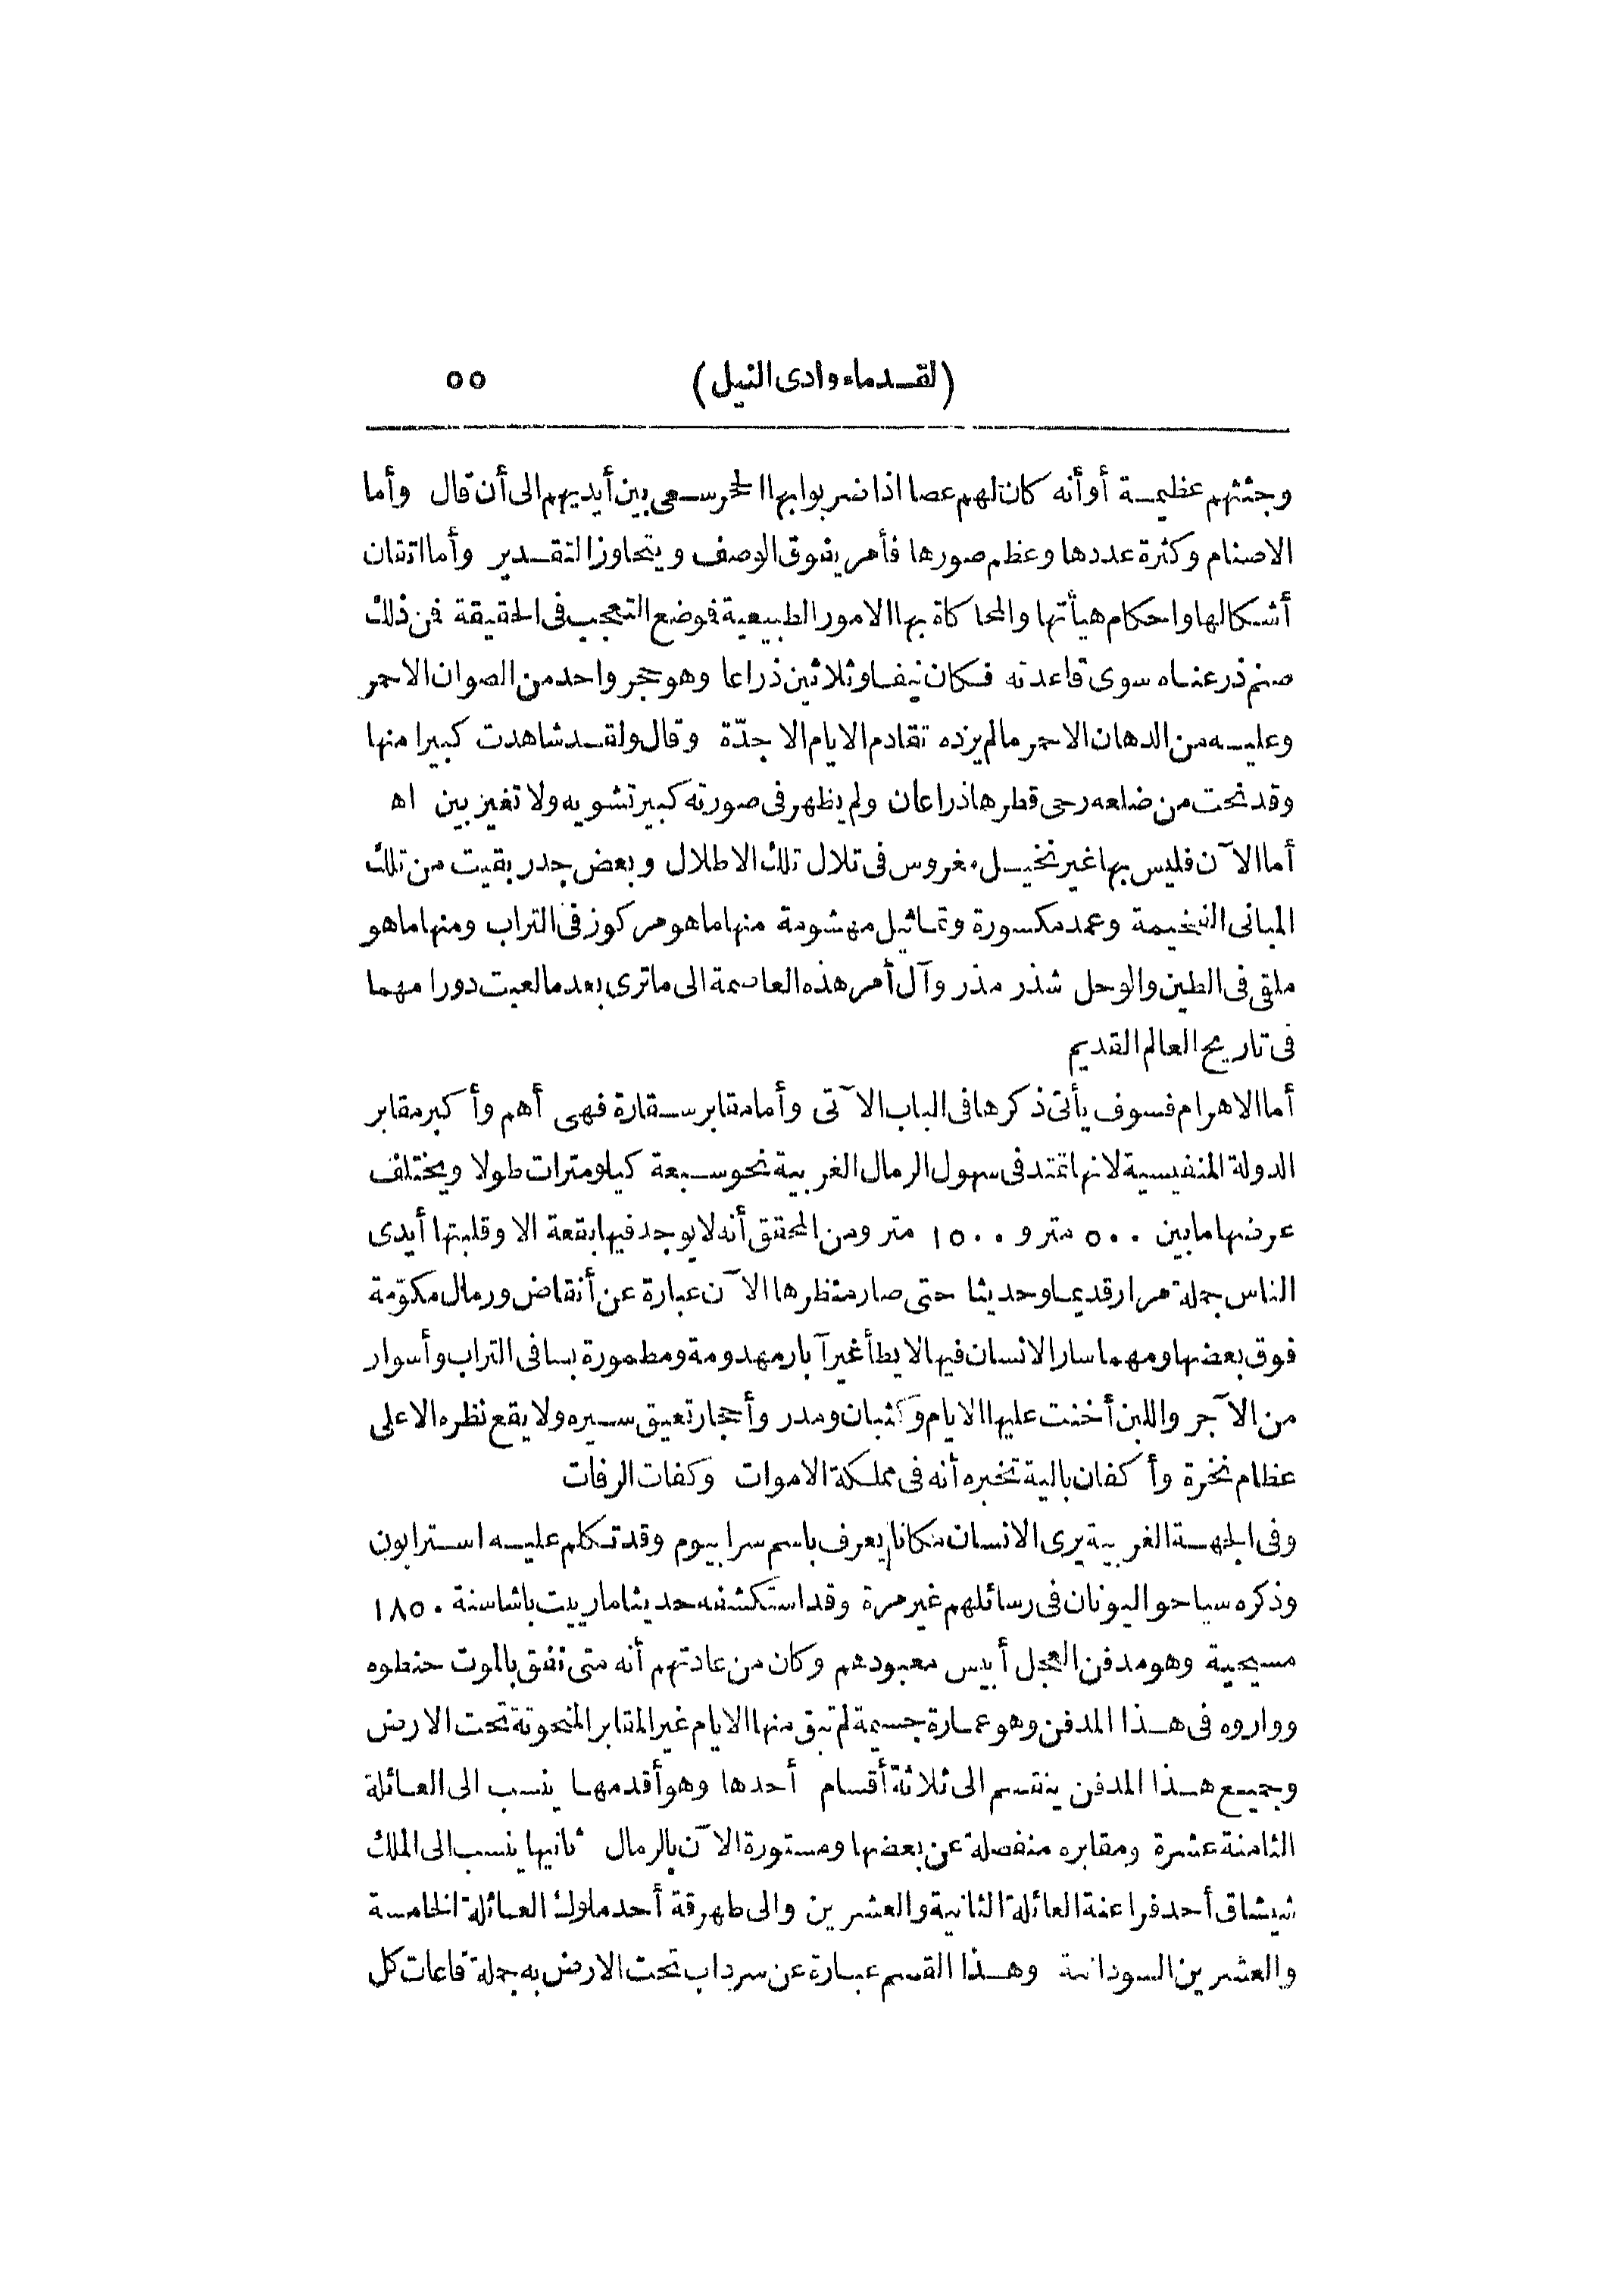 (لقدماء وادى النيل) ٥٥
وجثثهم عظيمة أو أنه كان لهم عصا اذا ضربوا بها الحجر سعى بين أيديهم الى أن قال وأما
الاصنام وكثرة عددها وعظم صورها فأمر يفوق الوصف ويتجاوز التقدير وأما اتقان
أشكالها واحكام هيأتها والمحاكاة بها الامور الطبيعية فوضع التعجب فى الحقيقة فمن ذلك
صنم ذرعناه سوى قاعدته فكان نيفا وثلاثين ذراعا وهو حجر واحد من الصوان الاحمر
وعليه من الدهان الاحمر مالم يزده تقادم الايام الا جدّة وقال ولقد شاهدت كبيرا منها
وقد نحت من ضلعه رحى قطرها ذراعان ولم يظهر فى صورته كبير تشويه ولا تغيز بين اه
أما الآن فليس بها غير نخيل مغروس فى تلال تلك الاطلال وبعض جدر بقيت من تلك
المبانى الفخيمة وعمد مكسورة وتماثيل مهشومة منها ما هو مركوز فى التراب ومنها ما هو
ملقى فى الطين والوحل شذر مذر وآل أمر هذه العاصمة الى ماترى بعد مالعبت دورا مهما
فى تاريخ العالم القديم
أما الاهرام فسوف يأتى ذكرها فى الباب الآتى وأما مقابر سقارة فهى أهم وأكبر مقابر
الدولة المنفيسية لانها تمتد فى سهول الرمال الغربية نحو سبعة كيلومترات طولا ويختلف
عرضها مابين ٥٠٠ متر و ١٥٠٠ متر ومن المحقق أنه لايوجد فيها بقعة الا وقلبتها أيدى
الناس جملة مرار قديما وحديثا حتى صار منظرها الآن عبارة عن أنقاض ورمال مكوّمة
فوق بعضها ومهما سار الانسان فيها لا يطأ غير آبار مهدومة ومطمورة بسافى التراب وأسوار
من الآجر واللبن أخنت عليها الايام وكثبان ومدر وأحجار تعيق سيره ولا يقع نظره الا على
عظام نخرة وأكفان بالية تخبره أنه فى مملكة الاموات وكفات الرفات
وفى الجهة الغربية يرى الانسان مكانا يعرف باسم سرابيوم وقد تكلم عليه استرابون
وذكره سياحو اليونان فى رسائلهم غير مرة وقد استكشفه حديثا مارييت باشا سنة ١٨٥٠
مسيحية وهو مدفن العجل أبيس معبودهم وكان من عادتهم أنه متى نفق بالموت حنطوه
وواروه فى هذا المدفن وهو عمارة جسيمة لم تبق منها الايام غير المقابر المنحوتة تحت الارض
وجميع هذا المدفن ينقسم الى ثلاثة أقسام أحدها وهو أقدمها ينسب الى العائلة
الثامنة عشرة ومقابره منفصلة عن بعضها ومستورة الآن بالرمال ثانيها ينسب الى الملك
شيشاق أحد فراعنة العائلة الثانية والعشرين والى طهرقة أحد ملوك العائلة الخامسة
والعشرين السودانية وهذا القسم عبارة عن سرداب تحت الارض به جملة قاعات كل